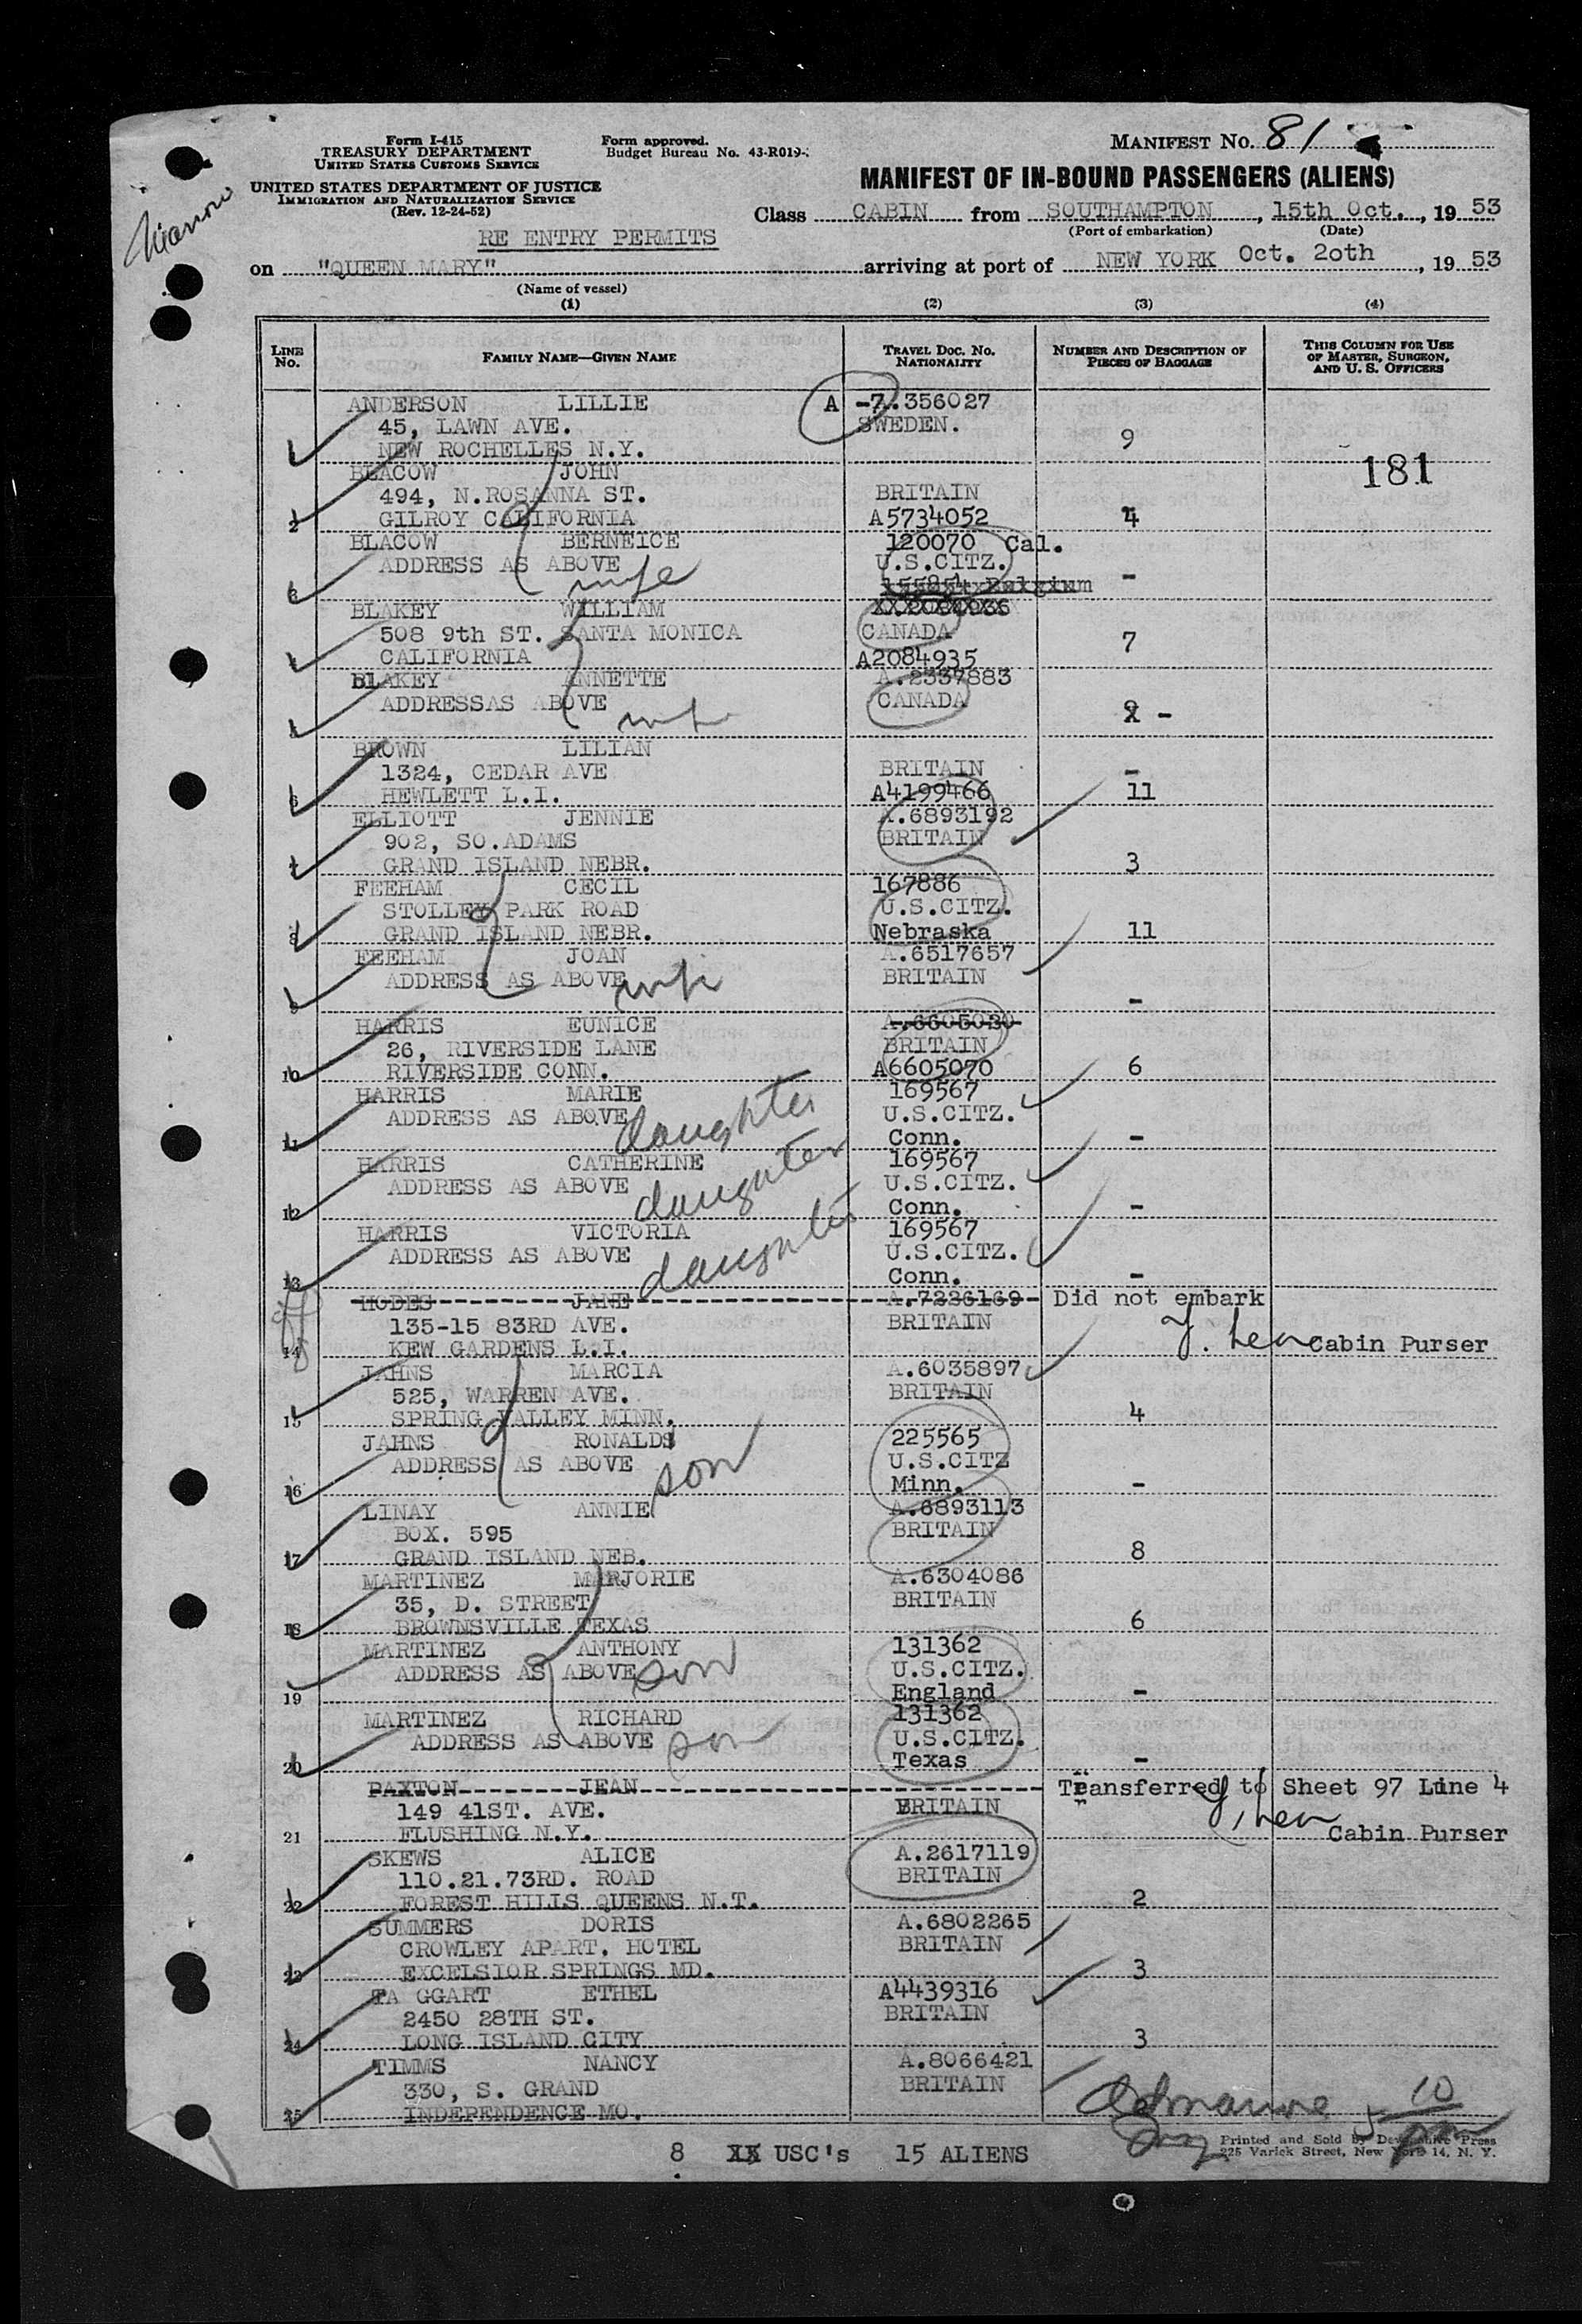 Form I-415
TREASURY DEPARTMENT
UNITED STATES CUSTOMS SERVICE
Form approved.
Budget Bureau No. 43-R019-
MANIFEST No. 81
UNITED STATES DEPARTMENT OF JUSTICE
IMMIGRATION AND NATURALIZATION SERVICE
(Rev. 12-24-52)
MANIFEST OF IN-BOUND PASSENGERS (ALIENS)
Class CABIN from SOUTHAMPTON, 15th Oct., 19 53
(Port of embarkation) (Date)
RE ENTRY PERMITS
on "QUEEN MARY" arriving at port of NEW YORK Oct. 20th, 19 53
(Name of vessel)
(1) (2) (3) (4)
LINE No. FAMILY NAME—GIVEN NAME TRAVEL DOC. No. NATIONALITY NUMBER AND DESCRIPTION OF PIECES OF BAGGAGE THIS COLUMN FOR USE OF MASTER, SURGEON, AND U. S. OFFICERS
ANDERSON LILLIE A -7.356027
45, LAWN AVE. SWEDEN.
NEW ROCHELLES N.Y. 9
181
BLACOW JOHN
494, N.ROSANNA ST. BRITAIN
2 GILROY CALIFORNIA A5734052 4
BLACOW BERNEICE 120070 Cal.
ADDRESS AS ABOVE wife U.S.CITZ.
3 -
BLAKEY WILLIAM
508 9th ST. SANTA MONICA CANADA
4 CALIFORNIA A2084935 7
BLAKEY ANNETTE A.2337883
ADDRESSAS ABOVE wife CANADA
-
BROWN LILIAN
1324, CEDAR AVE BRITAIN -
6 HEWLETT L.I. A4199466 11
ELLIOTT JENNIE A.6893192
902, SO.ADAMS BRITAIN
7 GRAND ISLAND NEBR. 3
FEEHAM CECIL 167886
STOLLEY PARK ROAD U.S.CITZ.
8 GRAND ISLAND NEBR. Nebraska 11
FEEHAM JOAN A.6517657
ADDRESS AS ABOVE wife BRITAIN
9 -
HARRIS EUNICE A.6605030
26, RIVERSIDE LANE BRITAIN
10 RIVERSIDE CONN. A6605070 6
HARRIS MARIE 169567
ADDRESS AS ABOVE daughter U.S.CITZ.
11 Conn. -
HARRIS CATHERINE 169567
ADDRESS AS ABOVE daughter U.S.CITZ.
12 Conn. -
HARRIS VICTORIA 169567
ADDRESS AS ABOVE daughter U.S.CITZ.
13 Conn. -
HODES JANE A.7226169 Did not embark
135-15 83RD AVE. BRITAIN
14 KEW GARDENS L.I. Cabin Purser
JAHNS MARCIA A.6035897
525, WARREN AVE. BRITAIN
15 SPRING VALLEY MINN. 4
JAHNS RONALDS 225565
ADDRESS AS ABOVE son U.S.CITZ
16 Minn. -
LINAY ANNIE A.6893113
BOX. 595 BRITAIN
17 GRAND ISLAND NEB. 8
MARTINEZ MARJORIE A.6304086
35, D. STREET BRITAIN
18 BROWNSVILLE TEXAS 6
MARTINEZ ANTHONY 131362
ADDRESS AS ABOVE son U.S.CITZ.
19 England -
MARTINEZ RICHARD 131362
ADDRESS AS ABOVE son U.S.CITZ.
20 Texas -
PAXTON JEAN Transferred to Sheet 97 Line 4
149 41ST. AVE. BRITAIN
21 FLUSHING N.Y. Cabin Purser
SKEWS ALICE A.2617119
110.21.73RD. ROAD BRITAIN
22 FOREST HILLS QUEENS N.T. 2
SUMMERS DORIS A.6802265
CROWLEY APART. HOTEL BRITAIN
23 EXCELSIOR SPRINGS MD. 3
TA GGART ETHEL A4439316
2450 28TH ST. BRITAIN
24 LONG ISLAND CITY 3
TIMMS NANCY A.8066421
330, S. GRAND BRITAIN
25 INDEPENDENCE MO. 10
Printed and Sold by Press
225 Varick Street, New York 14, N. Y.
8 USC's 15 ALIENS